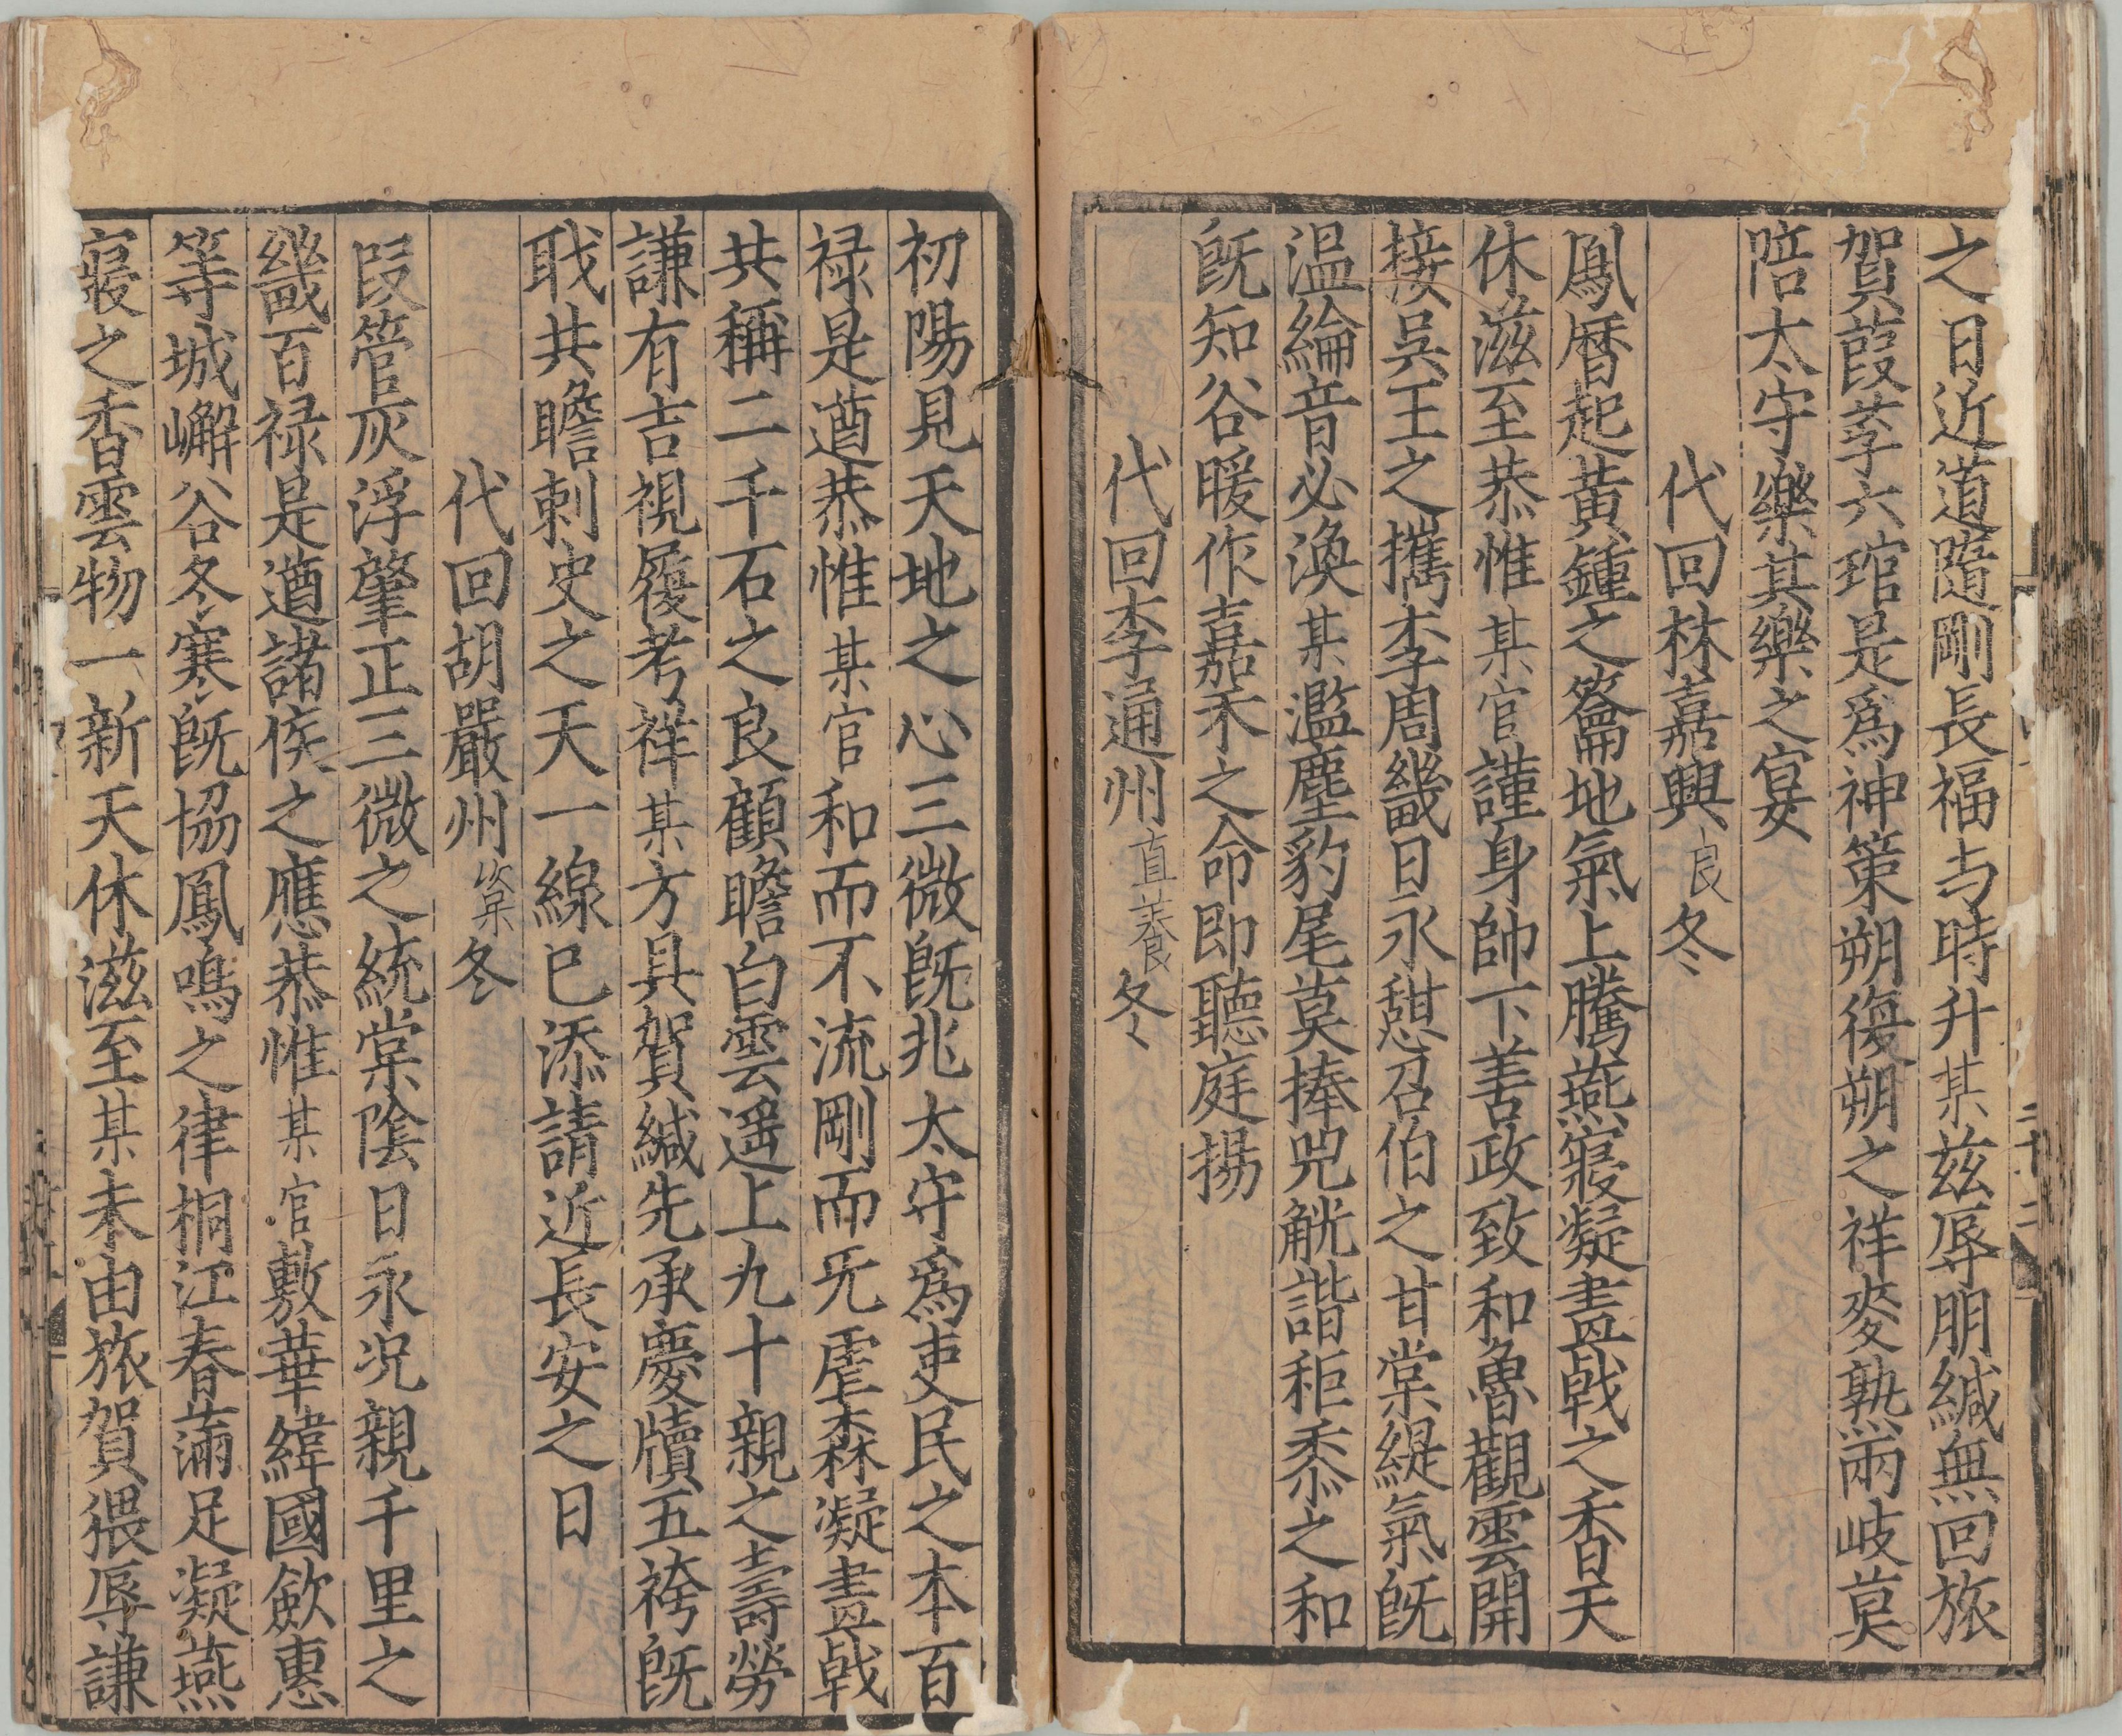 之日近道隨剛長福与時升某兹辱朋緘無回旅
賀葭莩六琯是爲神策朔復朔之祥麥熟兩岐莫
陪太守樂其樂之宴
代回林嘉興良冬
鳳曆起黃鍾之籥地氣上騰燕寢凝畫戟之香天
休滋至恭惟某官謹身帥下善政致和魯觀雲開
接吳王之攜李周畿日永憇召伯之甘棠緹氣旣
温綸音必渙某濫塵豹尾莫捧兕觥諧秬黍之和
旣知谷暖作嘉禾之命即聽庭揚
代回李通州直養冬
初陽見天地之心三微旣兆太守爲吏民之本百
禄是遒恭惟某官和而不流剛而旡虐森凝畫戟
共稱二千石之良顧瞻白雲遥上九十親之壽勞
謙有吉視履考祥某方具賀緘先承慶牘五袴旣
戢共瞻刺史之天一線已添請近長安之日
代回胡嚴州槼冬
叚管灰浮肇正三微之統棠陰日永况親千里之
畿百禄是遒諸侯之應恭惟某官敷華緯國歛惠
等城嶰谷冬寒旣協鳳鳴之律桐江春滿足凝燕
寢之香雲物一新天休滋至某未由旅賀猥辱謙